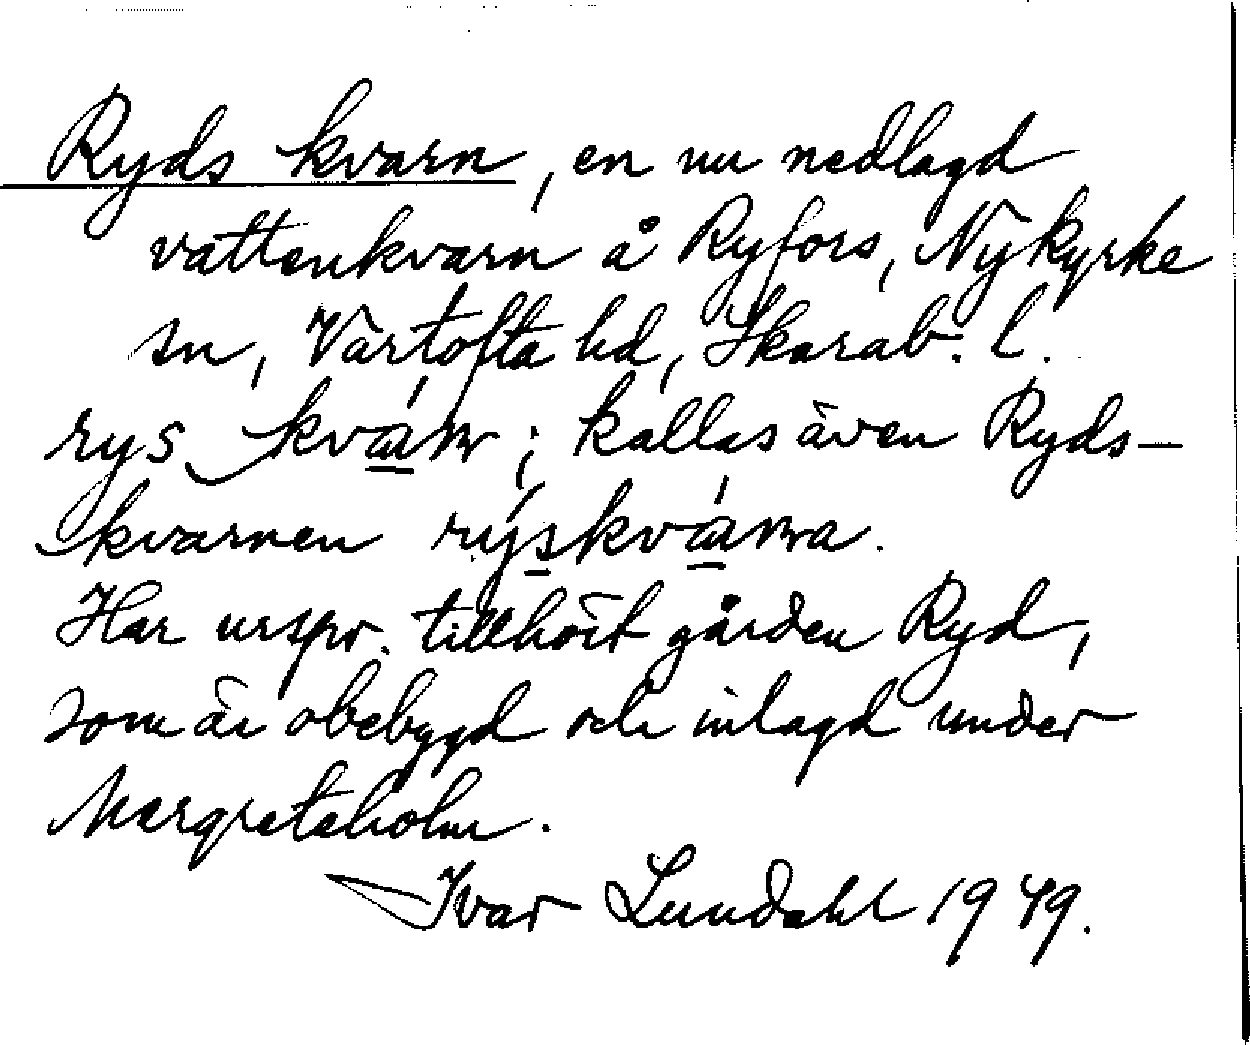 Ryds kvarn, en nu nedlagd
vattenkvarn å Ryfors, Nykyrke
sn, Vartofta hd, Skarab. l.
rys kván; kallas även Ryds-
kvarnen rýskvána.
Har urspr. tillhört gården Ryd,
som är obebygd och inlagd under
Margreteholm.
Ivar Lundahl 1949.